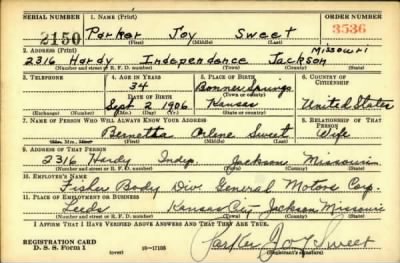 SERIAL NUMBER 1. NAME (Print) ORDER NUMBER
2150 Parker Joy Sweet 3536
(First) (Middle) (Last)
2. ADDRESS (Print) Missouri
2316 Hardy Independence Jackson
(Number and street or R. F. D. number) (Town) (County) (State)
3. TELEPHONE 4. AGE IN YEARS 5. PLACE OF BIRTH 6. COUNTRY OF CITIZENSHIP
34 Bonner Springs
DATE OF BIRTH (Town or county)
Sept 2 1906 Kansas United States
(Exchange) (Number) (Mo.) (Day) (Yr.) (State or country)
7. NAME OF PERSON WHO WILL ALWAYS KNOW YOUR ADDRESS 8. RELATIONSHIP OF THAT PERSON
Bernetha Arlene Sweet Wife
(Mr., Mrs., Miss) (First) (Middle) (Last)
9. ADDRESS OF THAT PERSON
2316 Hardy Indep. Jackson Missouri
(Number and street or R. F. D. number) (Town) (County) (State)
10. EMPLOYER'S NAME
Fisher Body Div. General Motors Corp.
11. PLACE OF EMPLOYMENT OR BUSINESS
Leeds Kansas City Jackson Missouri
(Number and street or R. F. D. number) (Town) (County) (State)
I AFFIRM THAT I HAVE VERIFIED ABOVE ANSWERS AND THAT THEY ARE TRUE.
REGISTRATION CARD
D. S. S. Form 1 (over) 16—17105 Parker Joy Sweet
(Registrant's signature)